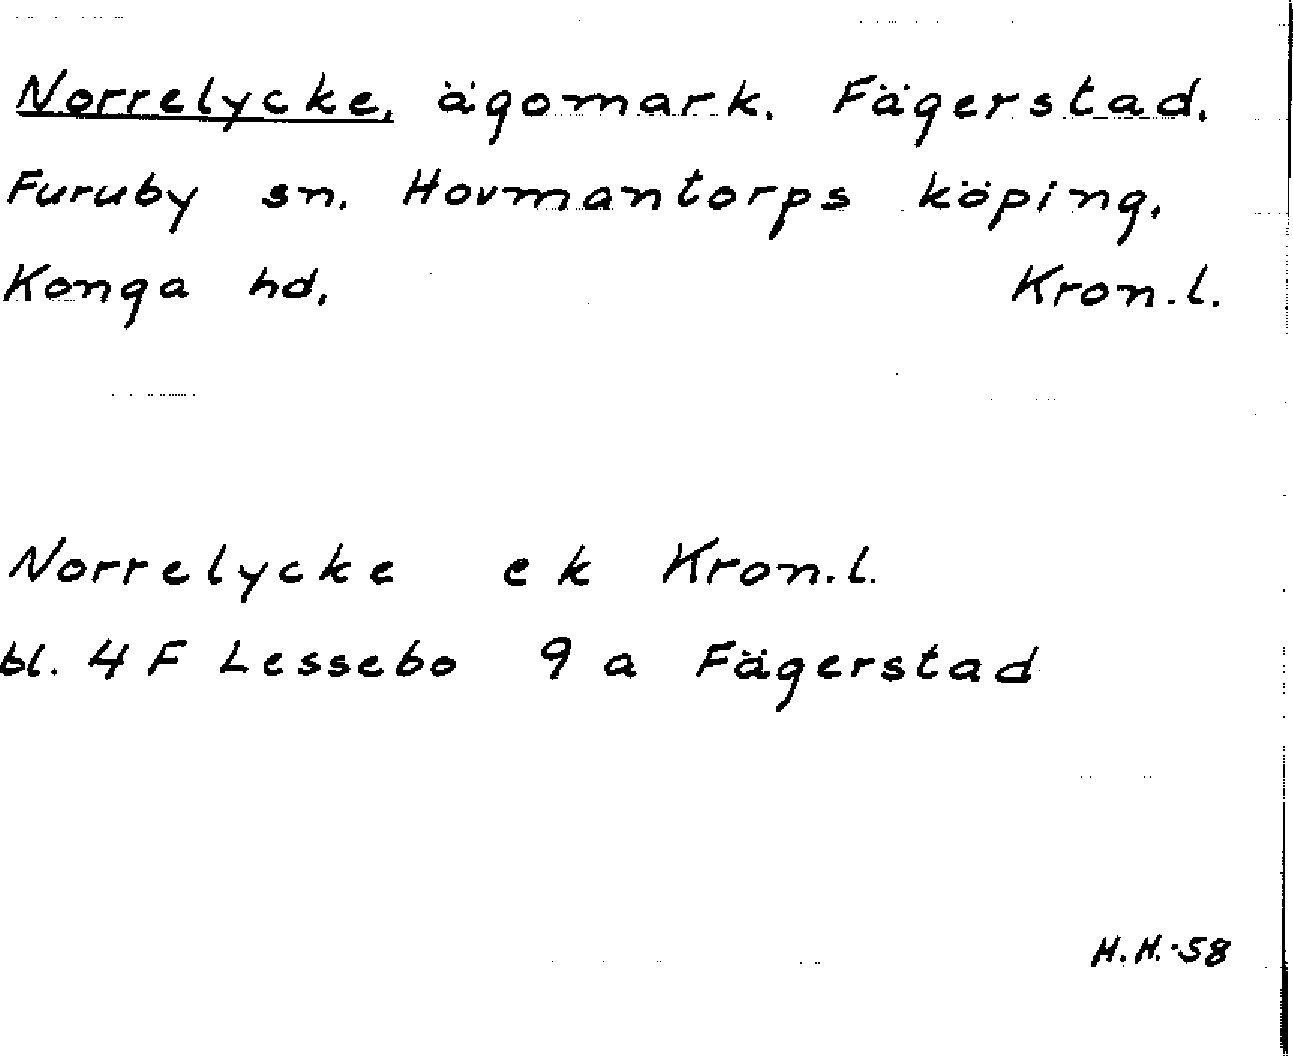 Norrelycke, ägomark. Fägerstad.
Furuby sn. Hovmantorps köping.
Konga hd. Kron.l.
Norrelycke ek Kron.l.
bl. 4 F Lessebo 9 a Fägerstad
H.H.-58